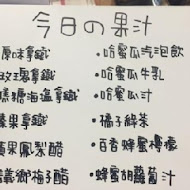 今日の果汁
原味拿鐵
玫瑰拿鐵
糖海塩拿鐵
果拿鐵
蘋果鳳梨醋
鄉梅子醋
・哈蜜瓜汽泡飲
・哈蜜瓜牛乳
・哈蜜瓜汁
・橘子鮮茶
・百香蜂蜜檸檬
・蜂蜜胡蘿蔔汁